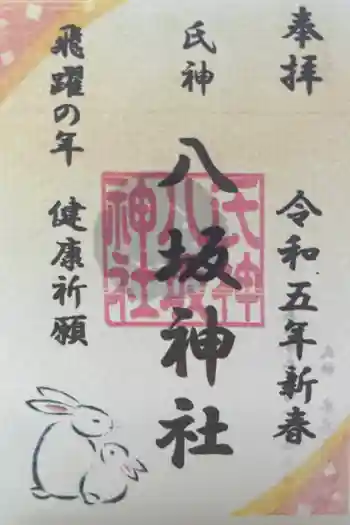 奉拝
令和五年新春
氏神
八坂神社
氏神八坂神社
飛躍の年 健康祈願